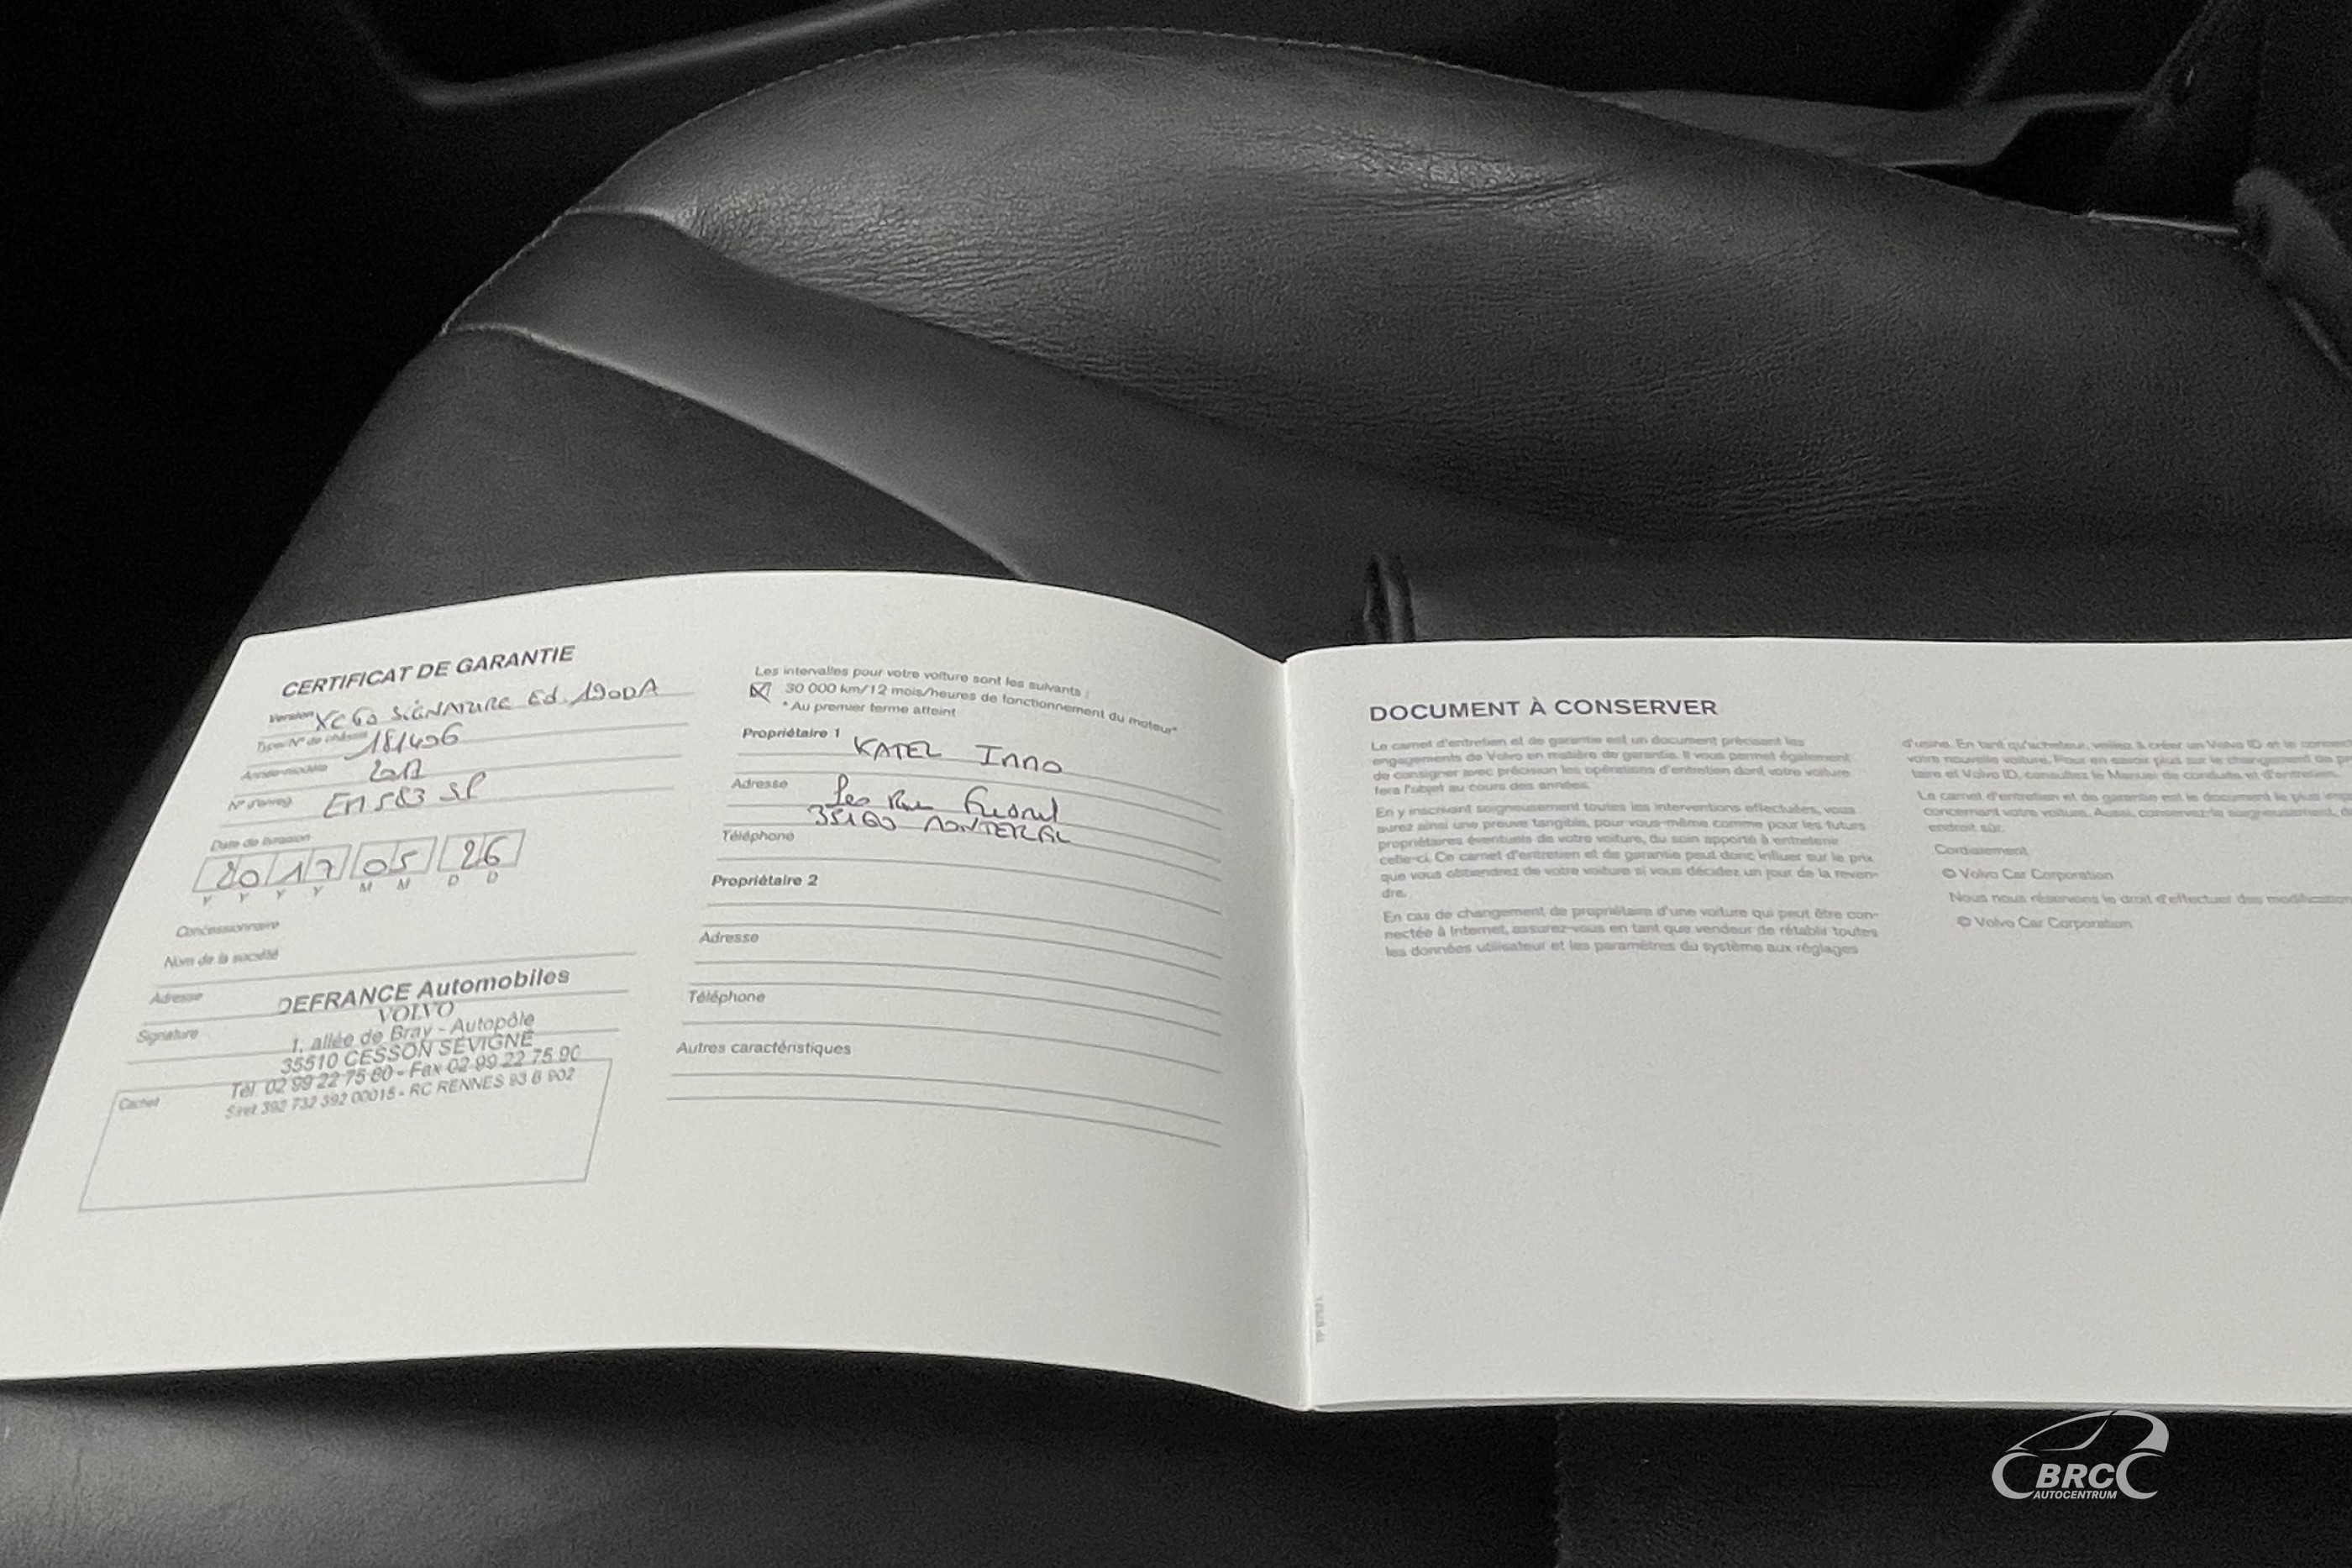 CERTIFICAT DE GARANTIE
Version XC60 SIGNATURE Ed. 190DA
Type/N° de châssis 181496
Année-modèle 2017
N° d'enreg. EM 583 SP
Date de livraison
20 17 05 26
Y Y Y Y M M D D
Concessionnaire
Nom de la société
Adresse
Signature
DEFRANCE Automobiles
VOLVO
1, allée de Bray - Autopôle
35510 CESSON SÉVIGNÉ
Tél. 02 99 22 75 80 - Fax 02 99 22 75 90
Siret 392 732 392 00015 - RC RENNES 93 B 902
Cachet
Les intervalles pour votre voiture sont les suivants :
30 000 km/12 mois/heures de fonctionnement du moteur*
* Au premier terme atteint
Propriétaire 1 KATEL Inno
Adresse
35160
Téléphone
Propriétaire 2
Adresse
Téléphone
Autres caractéristiques
DOCUMENT À CONSERVER
Le carnet d'entretien et de garantie est un document précisant les
engagements de Volvo en matière de garantie. Il vous permet également
de consigner avec précision les opérations d'entretien dont votre voiture
fera l'objet au cours des années.
En y inscrivant soigneusement toutes les interventions effectuées, vous
aurez ainsi une preuve tangible, pour vous-même comme pour les futurs
propriétaires éventuels de votre voiture, du soin apporté à entretenir
celle-ci. Ce carnet d'entretien et de garantie peut donc influer sur le prix
que vous obtiendrez de votre voiture si vous décidez un jour de la reven-
dre.
En cas de changement de propriétaire d'une voiture qui peut être con-
nectée à Internet, assurez-vous en tant que vendeur de rétablir toutes
les données utilisateur et les paramètres du système aux réglages
d'usine. En tant qu'acheteur, veillez à créer un Volvo ID et le
votre nouvelle voiture. Pour en savoir plus sur le changement de
taire et Volvo ID, consultez le Manuel de conduite et d'entretien.
Le carnet d'entretien et de garantie est le document le plus
concernant votre voiture. Aussi, conservez-le soigneusement,
endroit sûr.
Cordialement
© Volvo Car Corporation
Nous nous réservons le droit d'effectuer des
© Volvo Car Corporation
BRC
AUTOCENTRUM